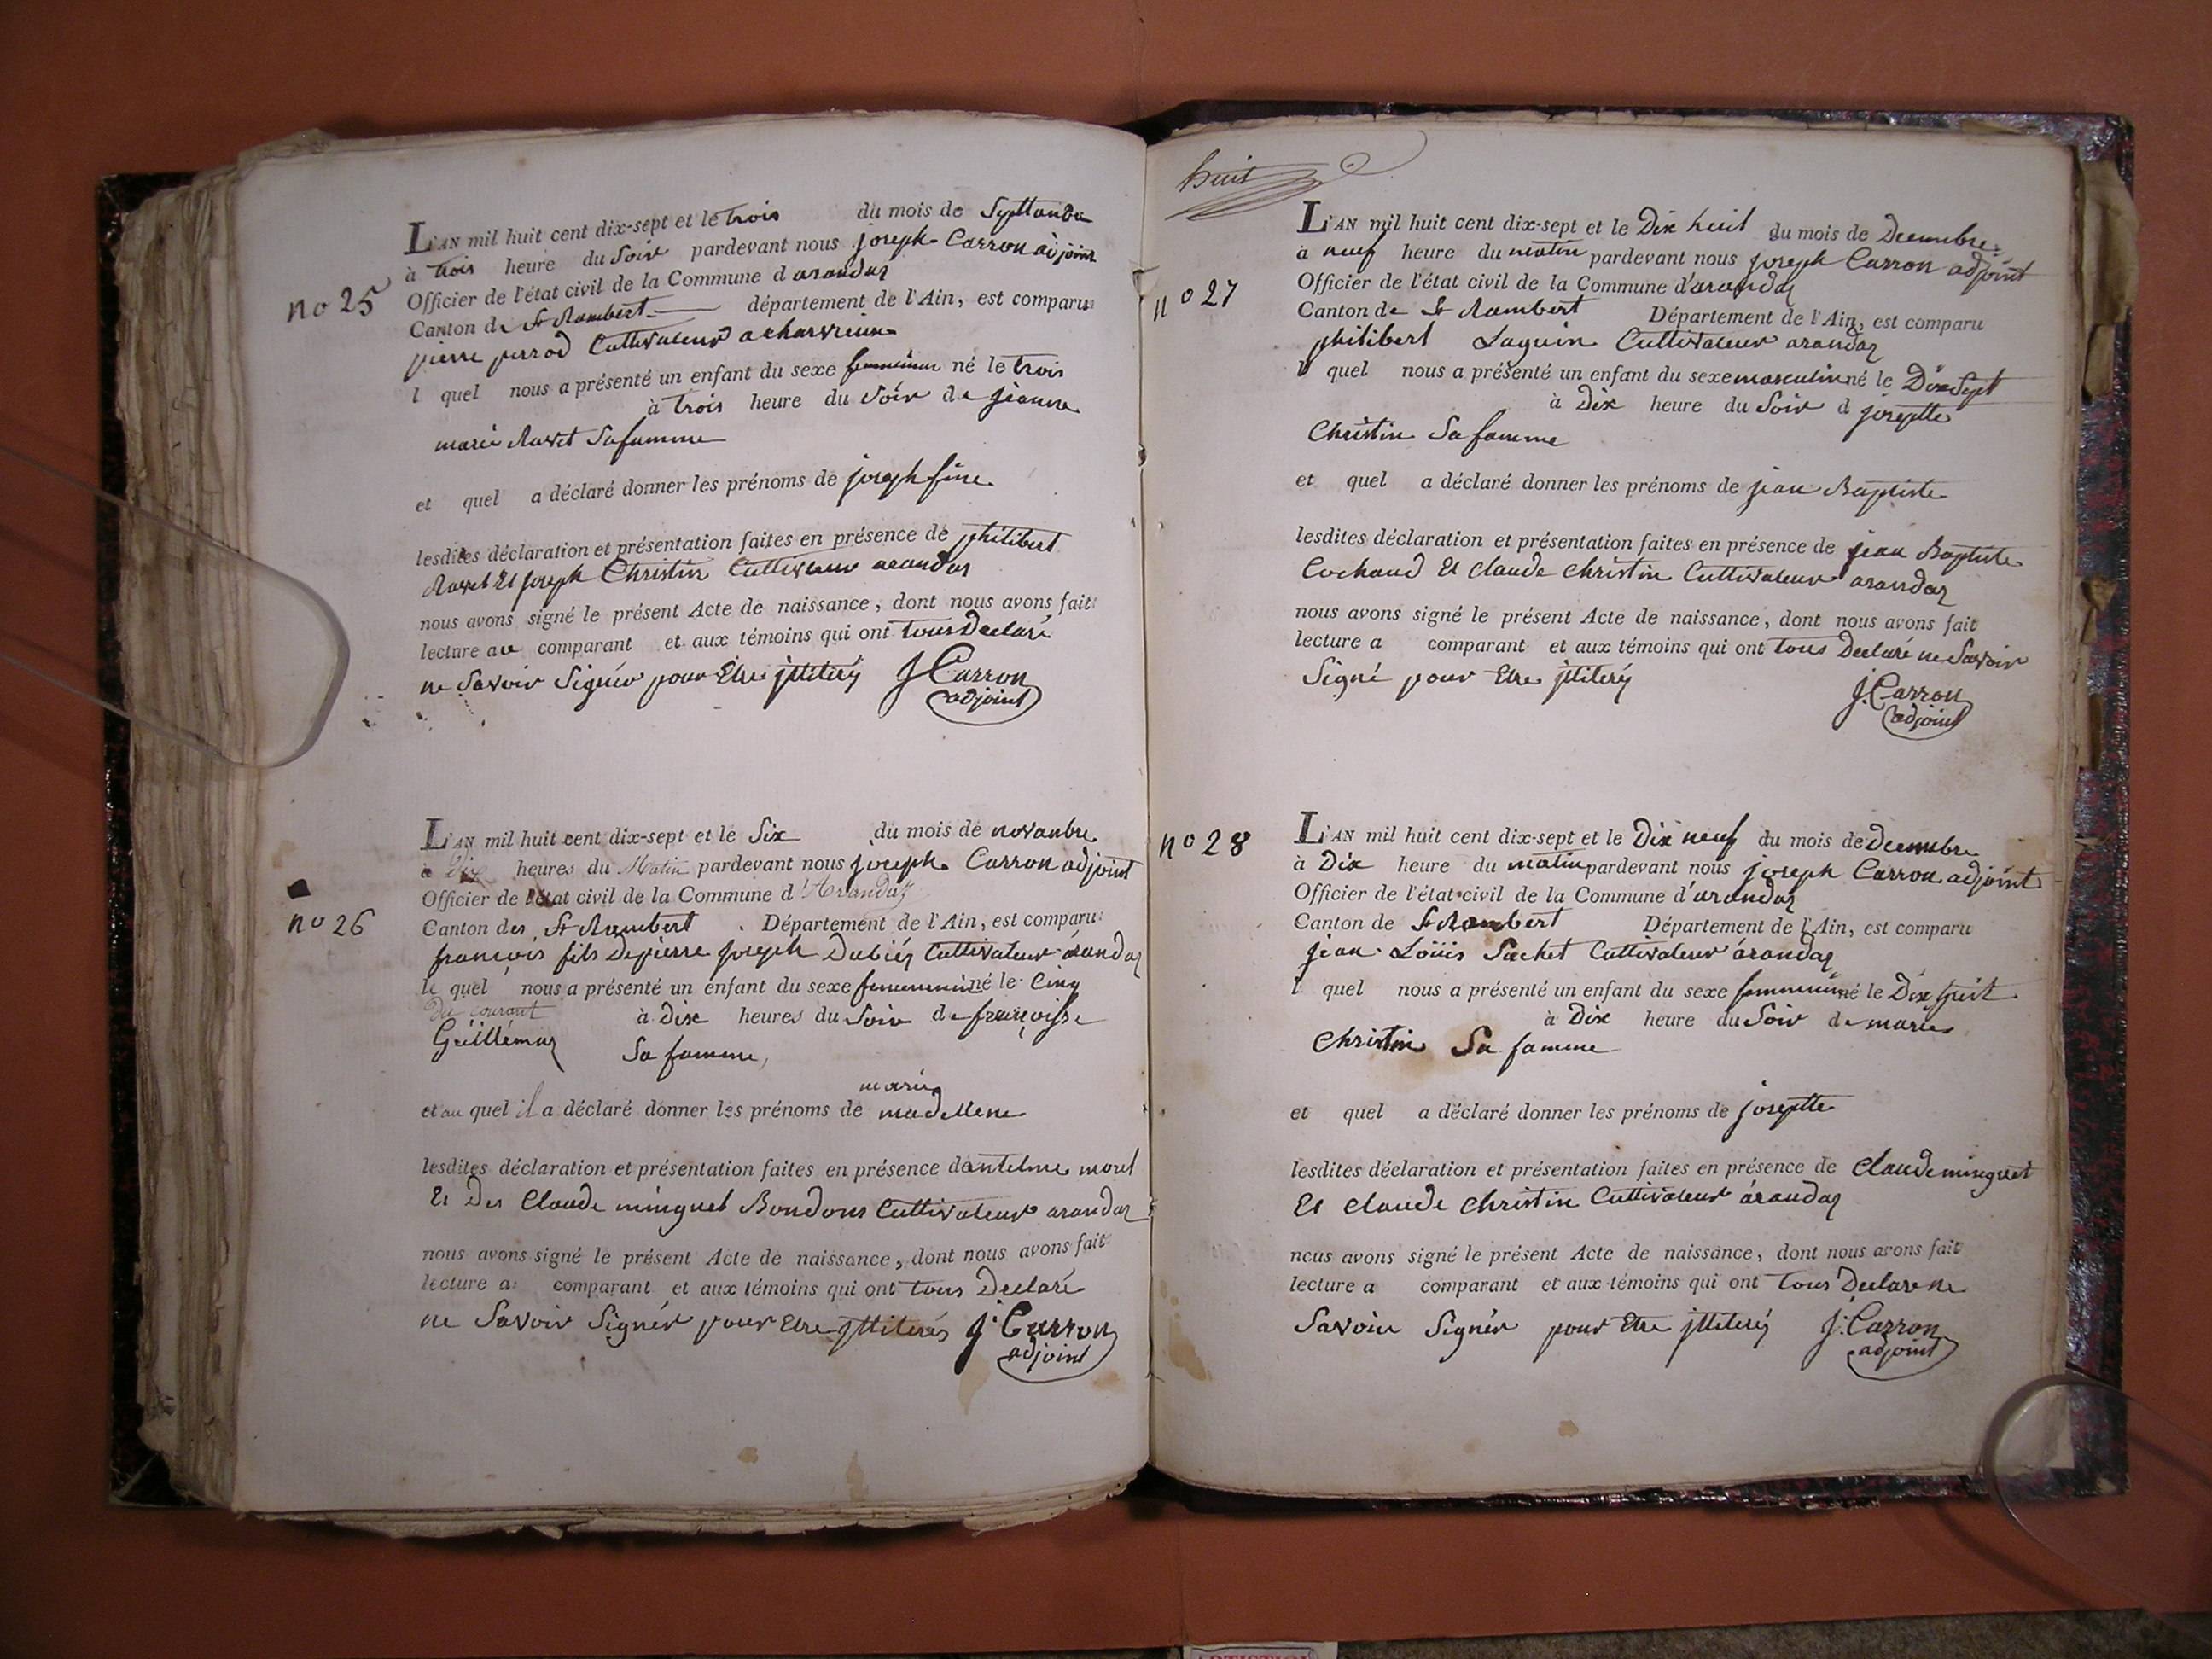 L'AN mil huit cent dix-sept et le trois du mois de Septtanbre
à trois heure du Soir pardevant nous joseph Carron adjoint
Officier de l'état civil de la Commune d arandaz
no 25
Canton de St Rambert département de l'Ain, est comparu
pierre perrod Cultivateur a charvieux
l quel nous a présenté un enfant du sexe femminin né le trois
à trois heure du Soir de jeanne
marie Ravet Sa famme
et quel a déclaré donner les prénoms de joseph fine
lesdites déclaration et présentation faites en présence de philibert
Ravet Et joseph Christin Cultivateur arandas
nous avons signé le présent Acte de naissance, dont nous avons fait
lecture au comparant et aux témoins qui ont tous Declaré
ne Savoir Signér pour Etre jlliterés J Carron
adjoint
L'AN mil huit cent dix-sept et le Six du mois de novanbre
à Dix heures du Matin pardevant nous joseph Carron adjoint
Officier de l'état civil de la Commune d'Arandaz
no 26
Canton de St Rambert Département de l'Ain, est comparu
francois fils De pierre joseph Dubiéz Cultivateur arandaz
le quel nous a présenté un enfant du sexe femmenin né le Cinq
du courant à Dix heures du Soir de françoisse
Guillémaz Sa famme,
marie
et au quel il a déclaré donner les prénoms de madellene
lesdites déclaration et présentation faites en présence dantelme morel
Et De Claude minguet Bondons Cultivateur arandaz
nous avons signé le présent Acte de naissance, dont nous avons fait
lecture a comparant et aux témoins qui ont tous Declaré
ne Savoir Signér pour Etre jlliterés J. Carron
adjoint
huit
L'AN mil huit cent dix-sept et le Dix huit du mois de Decembre
à neuf heure du matin pardevant nous joseph Carron adjoint
Officier de l'état civil de la Commune d'arandaz
no 27
Canton de St Rambert Département de l'Ain, est comparu
philibert Laguin Cultivateur arandaz
l quel nous a présenté un enfant du sexe masculin né le Dix Sept
à Dix heure du Soir d joseptte
Christin Sa famme
et quel a déclaré donner les prénoms de jean Baptiste
lesdites déclaration et présentation faites en présence de jean Baptiste
Cochaud Et Claude Christin Cultivateur arandaz
nous avons signé le présent Acte de naissance, dont nous avons fait
lecture a comparant et aux témoins qui ont tous Declaré ne Savoir
Signé pour Etre jlliterés
J. Carron
adjoint
no 28
L'AN mil huit cent dix-sept et le Dix neuf du mois de Decembre
à Dix heure du matin pardevant nous joseph Carron adjoint
Officier de l'état civil de la Commune d'arandaz
Canton de St Rambert Département de l'Ain, est comparu
jean Loüis Sachet Cultivateur árandaz
l quel nous a présenté un enfant du sexe femminin né le Dix huit
à Dix heure du Soir de marie
Christin Sa famme
et quel a déclaré donner les prénoms de joseptte
lesdites déclaration et présentation faites en présence de Claude minguet
Et Claude Christin Cultivateur árandaz
nous avons signé le présent Acte de naissance, dont nous avons fait
lecture a comparant et aux témoins qui ont tous Declare ne
Savoir Signér pour Etre jlliterés J. Carron
adjoint